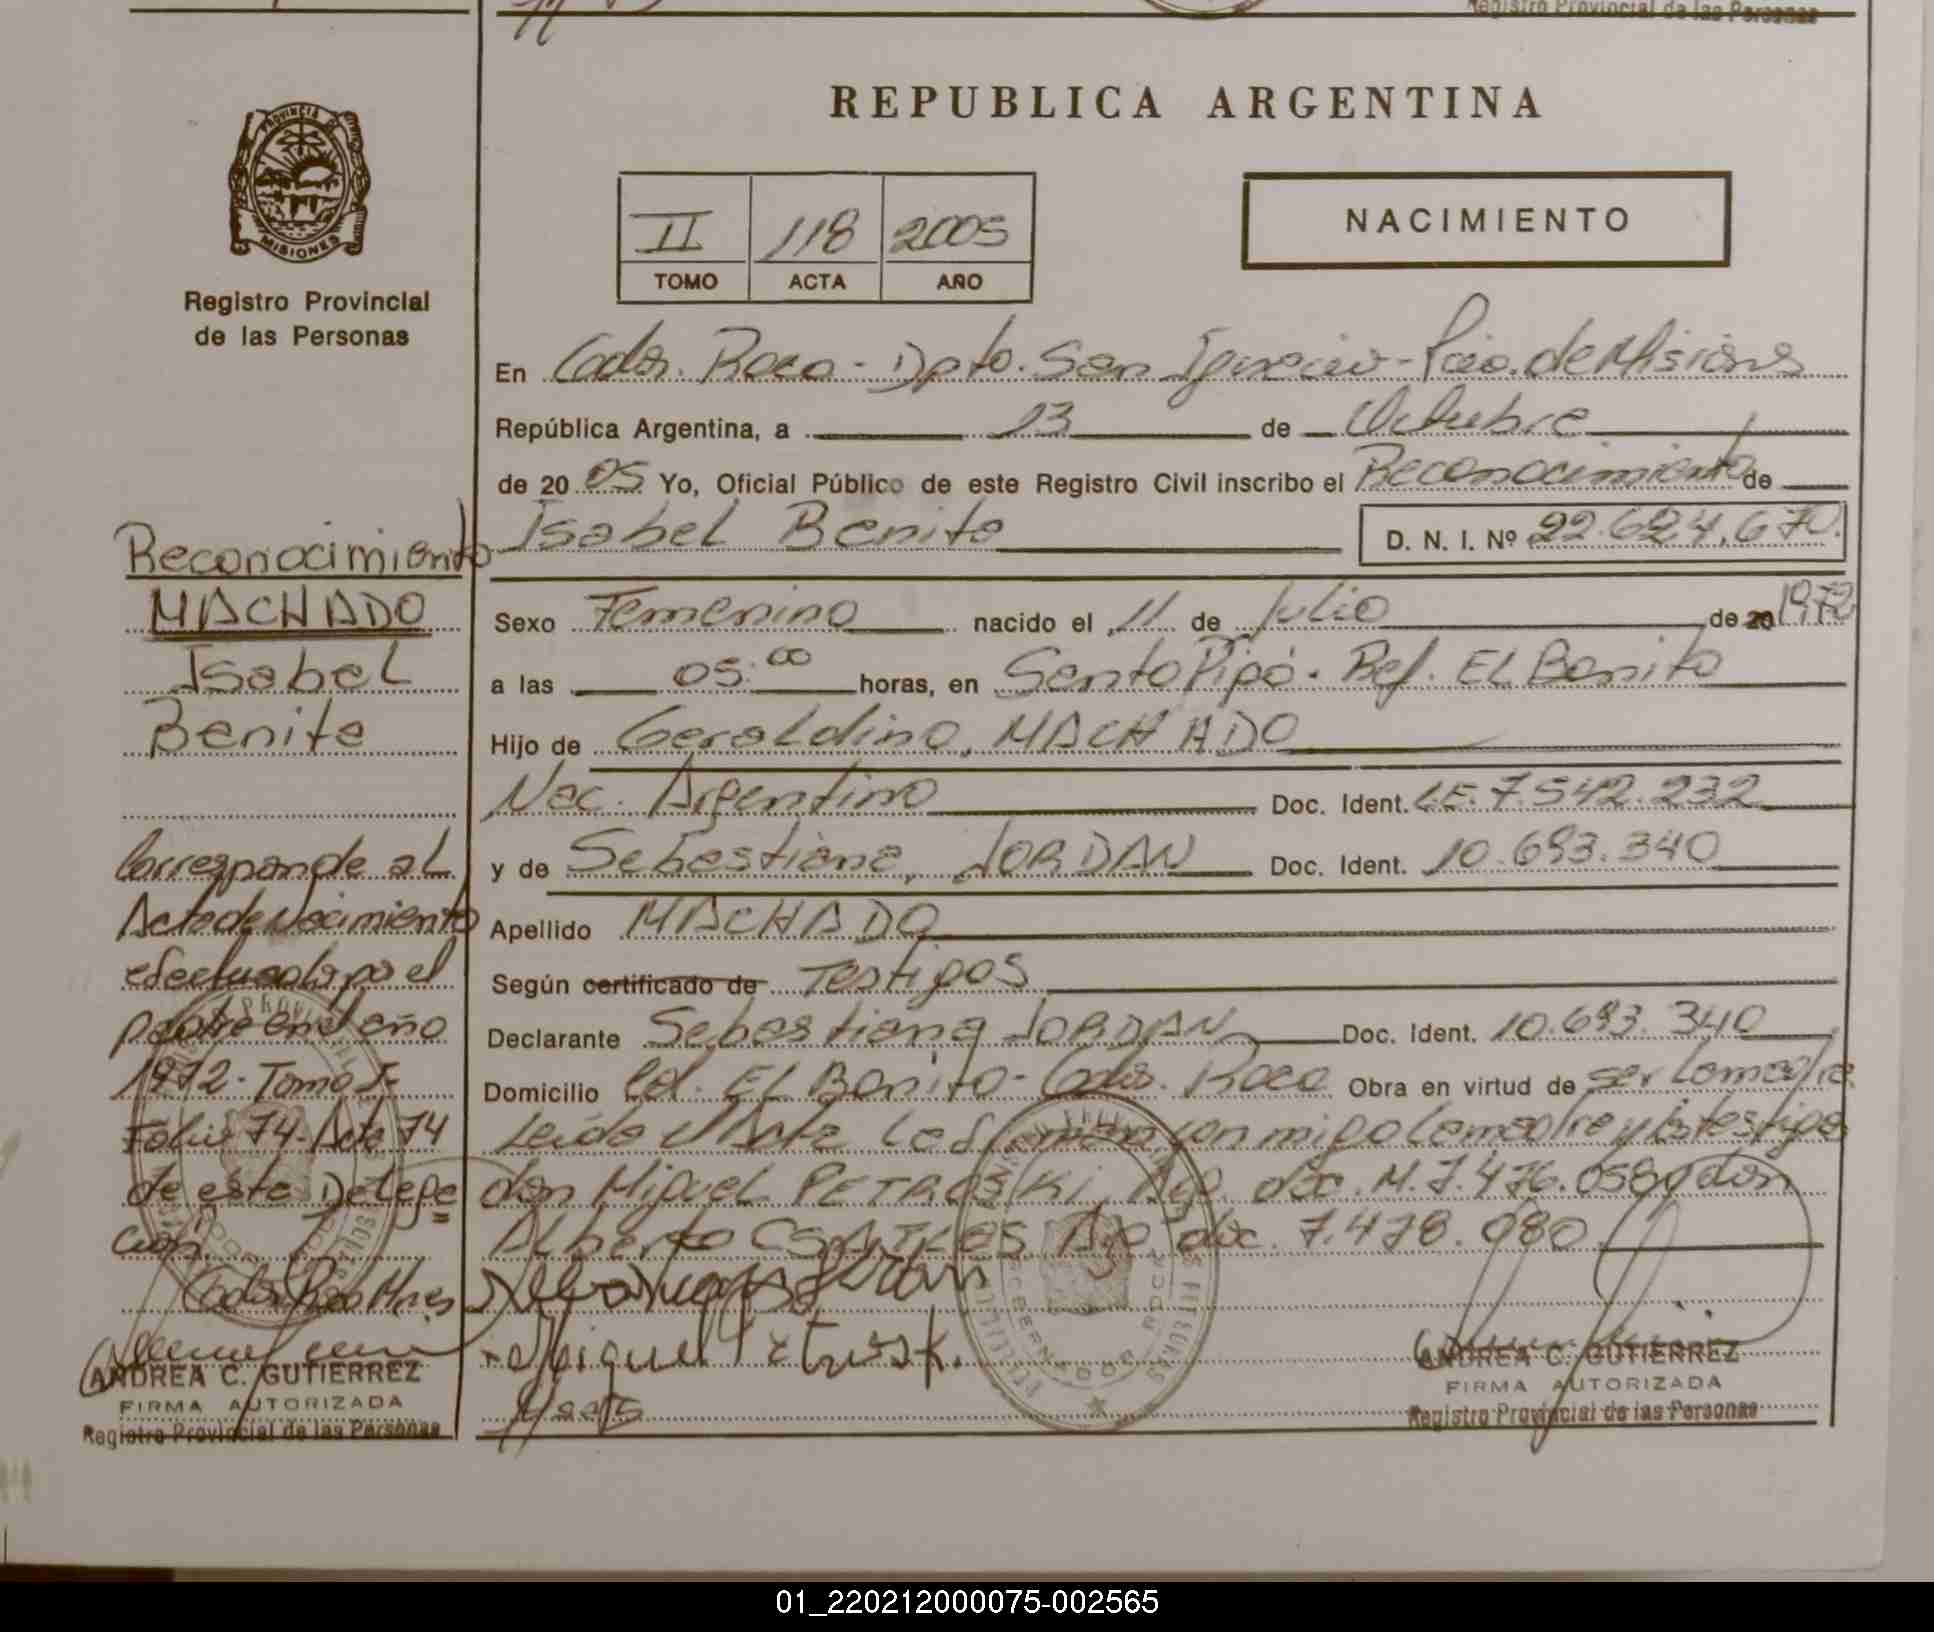 Registro Provincial de las Personas
PROVINCIA DE
MISIONES
Registro Provincial
de las Personas
REPUBLICA ARGENTINA
II 118 2005
TOMO ACTA AÑO
NACIMIENTO
En Gdor. Roca - Dpto. San Ignacio - Pcia. de Misiones
República Argentina, a 13 de Octubre
de 2005 Yo, Oficial Público de este Registro Civil inscribo el Reconocimiento de
Isabel Benita D. N. I. Nº 22.624.670.
Sexo Femenino nacido el 11 de Julio de 20 1972
a las 05:00 horas, en Santo Pipó - Ref. EL Bonito
Hijo de Geraldino, MACHADO
Nac. Argentino Doc. Ident. L.E. 7.542.232
y de Sebastiana, JORDAN Doc. Ident. 10.693.340
Apellido MACHADO
Según certificado de Testigos
Declarante Sebastiana JORDAN Doc. Ident. 10.693.340
Domicilio Col. EL Bonito - Gdor. Roca Obra en virtud de ser la madre
Leída el Acta la firman conmigo la madre y los testigos
don Miguel PETROSKI, Arg. doc. M. 7.476.058 y don
Alberto Arg. doc. 7.478.080
Miguel Petrosk.
ANDREA C. GUTIERREZ
FIRMA AUTORIZADA
Registro Provincial de las Personas
Reconocimiento
MACHADO
Isabel
Benita
Corresponde al
Acta de Nacimiento
efectuada por el
padre en el año
1972 - Tomo I-
Folio 74 - Acta 74
de esta Delega
ción.
Gdor. Roca Mnes
ANDREA C. GUTIERREZ
FIRMA AUTORIZADA
Registro Provincial de las Personas
01_220212000075-002565